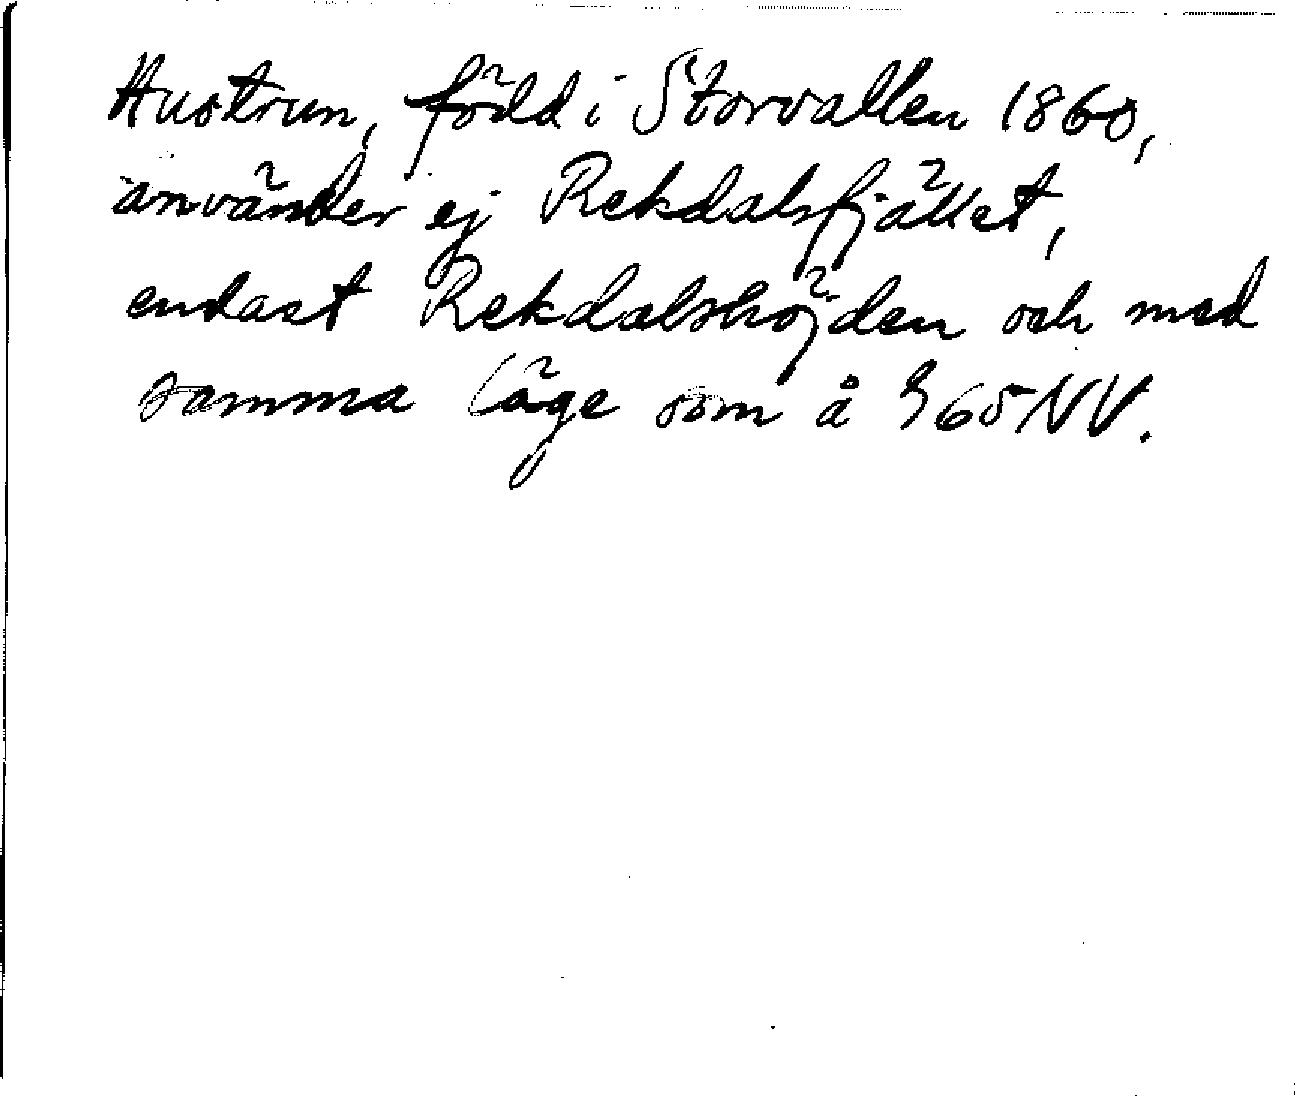 Hustrun, född i Storvallen 1860,
använder ej Rekdalsfjället,
endast Rekdalshöjden och med
samma läge som å 965NV.